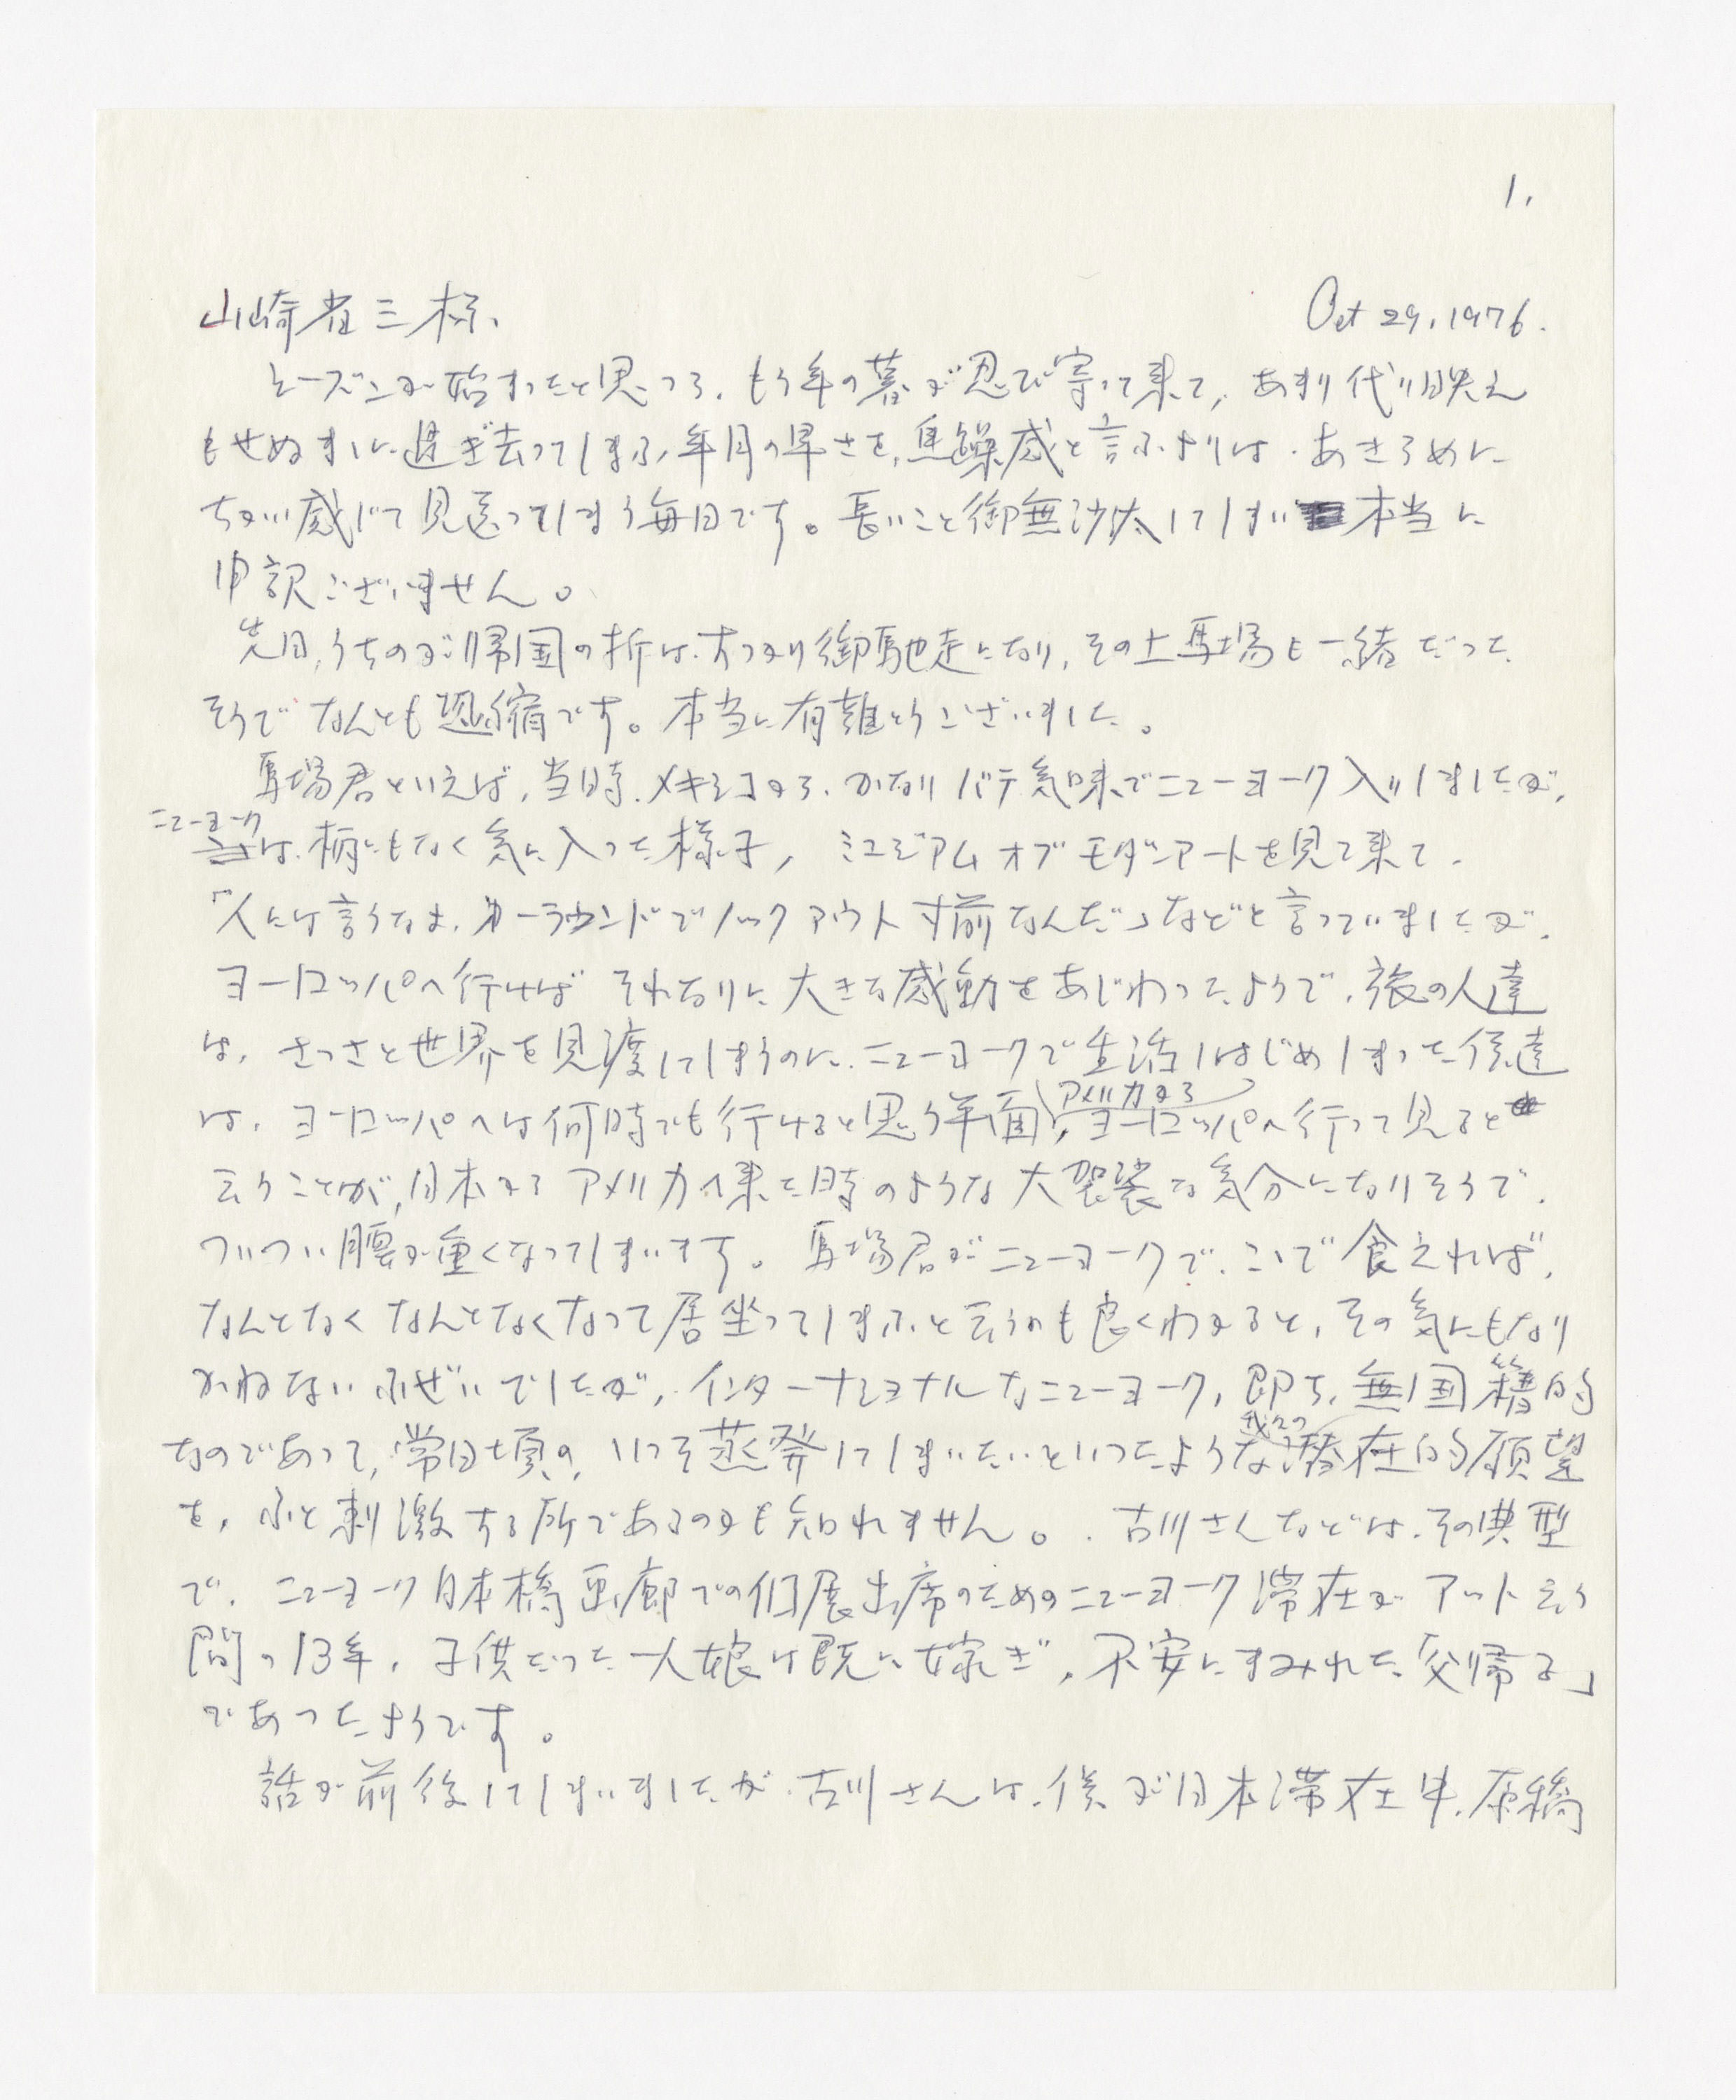 1.
山崎省三様、
Oct 29, 1976.
シーズンが始まったと思ったら、もう年の暮が忍び寄って来て、あまり代り映え
もせぬままに過ぎ去ってしまふ年月の早さを、焦躁感と言ふよりは、あきらめに
ちかい感じで見送ってしまう毎日です。長いこと御無沙汰してしまい本当に
申訳ございません。
先日、うちのが帰国の折は、すっかり御馳走になり、その上馬場も一緒だった
そうでなんとも恐縮です。本当に有難とうございました。
馬場君といえば、当時、メキシコから、かなりバテ気味でニューヨーク入りしましたが、
ニューヨーク
は、柄にもなく気に入った様子、ミュージアムオブモダンアートを見て来て、
「人には言うなよ、オーラウンドでノックアウト寸前なんだ」などと言っていましたが、
ヨーロッパへ行けばそれなりに大きな感動をあじわったようで、旅の人達
は、さっさと世界を見渡してしまうのに、ニューヨークで生活しはじめしまった僕達
は、ヨーロッパへは何時でも行けると思う半面、アメリカからヨーロッパへ行って見ると
云うことが、日本からアメリカへ来た時のような大袈裟な気分になりそうで、
ついつい腰が重くなってしまいます。馬場君がニューヨークで、こゝで食えれば、
なんとなくなんとなくなって居坐ってしまふと云うのも良くわかると、その気にもなり
かねないふぜいでしたが、インターナショナルなニューヨーク、即ち、無国籍的
なのであって、常日頃の、いっそ蒸発してしまいたいといったような我々の潜在的願望
を、ふと刺激する所であるのかも知れません。古川さんなどは、その典型
で、ニューヨーク日本橋画廊での個展出席のためのニューヨーク滞在がアット云う
間の13年、子供だった一人娘は既に嫁ぎ、不安にまみれた「父帰る」
であったようです。
話が前後してしまいましたが、古川さんは、僕が日本滞在中、原稿